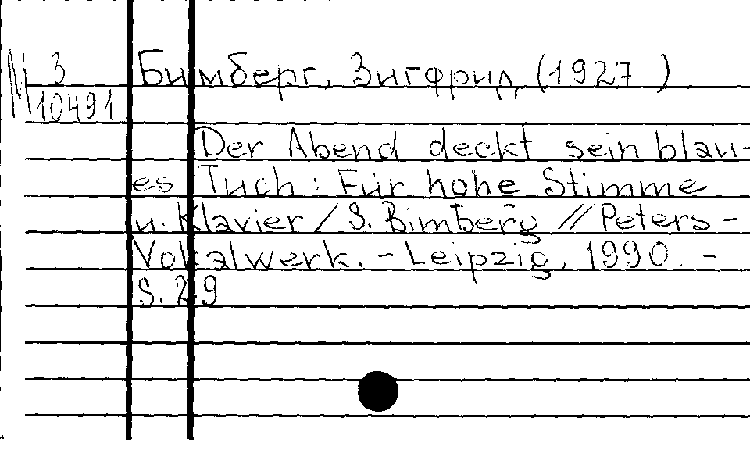 М 3 Бимберг, Зигфрид (1927 )
10491
Der Abend deckt sein blau-
es Tuch : Für hohe Stimme
u. Klavier / S. Bimberg // Peters -
Vokalwerk. - Leipzig, 1990. -
S. 29